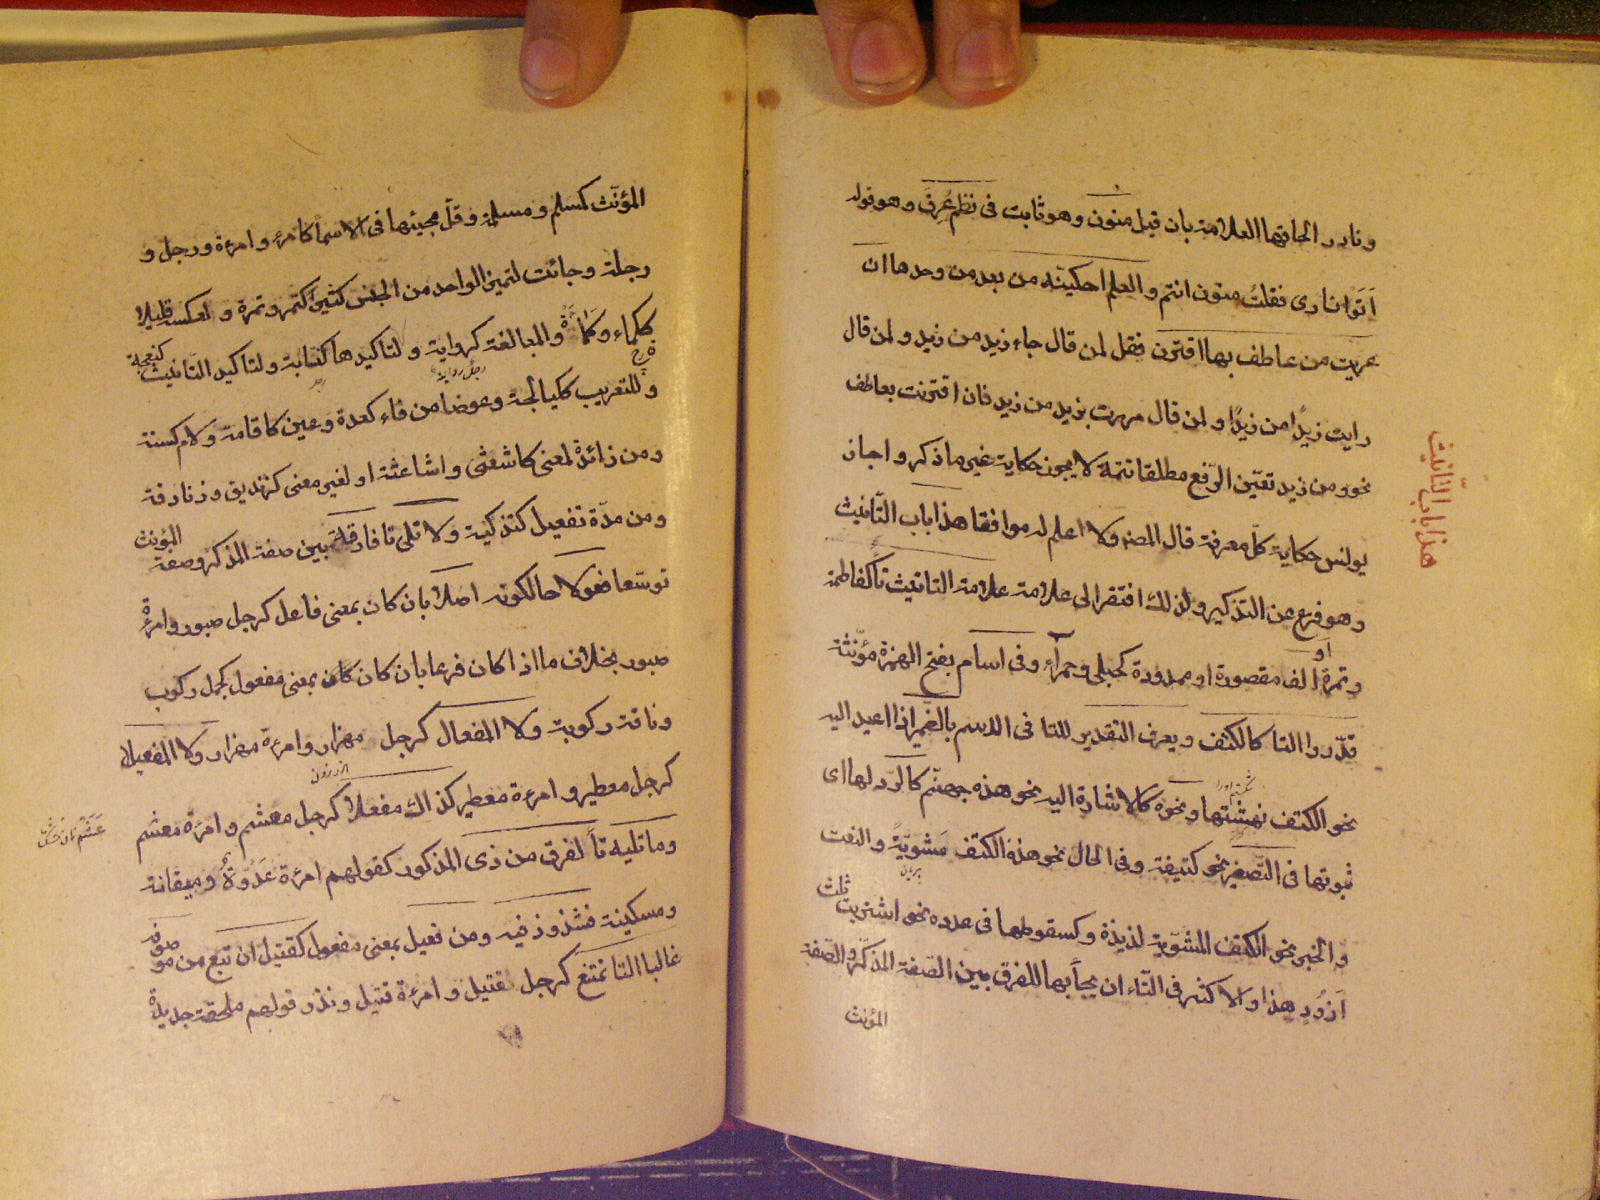 ونادر الحاقها العلامة بان قيل منون وهو ثابت فى نظم عُرِفَ وهو قوله
اَتَوا نارى فقلتُ منون انتم والعلم احكينّه من بعد من وحدها ان
عريت من عاطف بها اقترن فقل لمن قال جاء زيد من زيد ولمن قال
رايت زيدًا من زيدًا ولمن قال مررت بزيد من زيد فان اقترنت بعاطف
نحو ومن زيد تعيّن الرّفع مطلقا تتمة لا يجوز حكاية غير ما ذكر واجاز
يونس حكاية كلّ معرفة قال المصه ولا اعلم له موافقا هذا باب التّانيث
هذا باب التّانيث
وهو فرع من التذكير ولذلك افتقر الى علامة علامة التانيث تاٌ كفاطمة
وتمرة او الف مقصورة او ممدودة كحبلى وحمراء وفى اسام بفتح الهمزة مؤنّثة
قدّروا التا كالكتف ويعرف التقدير للتا فى الاسم بالضّمير اذا اعيد اليه
نحو الكتف نهشتها ونحوه كالاشارة اليه نحو هذه جهنّم كالرّد لها اى
ثبوتها فى التّصغير نحو كتيفة وفى الحال نحو هذه الكتف مَشويّةً والنعت
والخبر نحو الكتف المشويّة لذيذة وكسقوطها فى عدده نحو اشتريت ثلث
اَذوُد هذا والاكثر فى التّاء ان يجاَ بها للفرق بين الصّفة المذكّر والصّفة
المؤنث
المؤنّث كمسلم ومسلمة وقلّ مجيئها فى الاسما كامرء وامرءة ورجل و
رجلة وجائت لتمييز الواحد من الجنس كثيرًا كتمر وتمرة ولعكسه قليلا
ككماء وكَمْأَةٌ والمبالغة كرواية ولتاكيدها كنسّابة ولتاكيد التّانيث كنعجة
رجل رواية
وللتعريب ككيالجة وعوضا من فاء كعدة وعين كاقامة ولام كسنة
ومن زائدة لمعنى كاشعثى واشاعثة او لغير معنى كزنديق وزنادقة
ومن مدّة تفعيل كتذكية ولا تلى تا فارقة بين صفة المذكر وصفة المؤنث
توسّعا فعولا حالكونه اصلا بان كان بمعنى فاعل كرجل صبور وامرءة
صبور بخلاف ما اذا كان فرعا بان كان كان بمعنى مفعول كجمل ركوب
وناقة ركوبة ولا المفعال كرجل مهذار وامرءة مهذار ولا المفعيل
كرجل معطير وامرءة معطير كذاك مفعل كرجل مغشم وامرءة مغشم
وما تليه تاٌ لفرق من ذى المذكور كقولهم امرءة عَدُوّةٌ وميقانة
ومسكينة فشذوذ فيه ومن فعيل بمعنى مفعول كقتيل ان تبع من موصوفه
غالبا التا تمتنع كرجل قتيل وامرءة قتيل وندر قولهم ملحفة جديدة